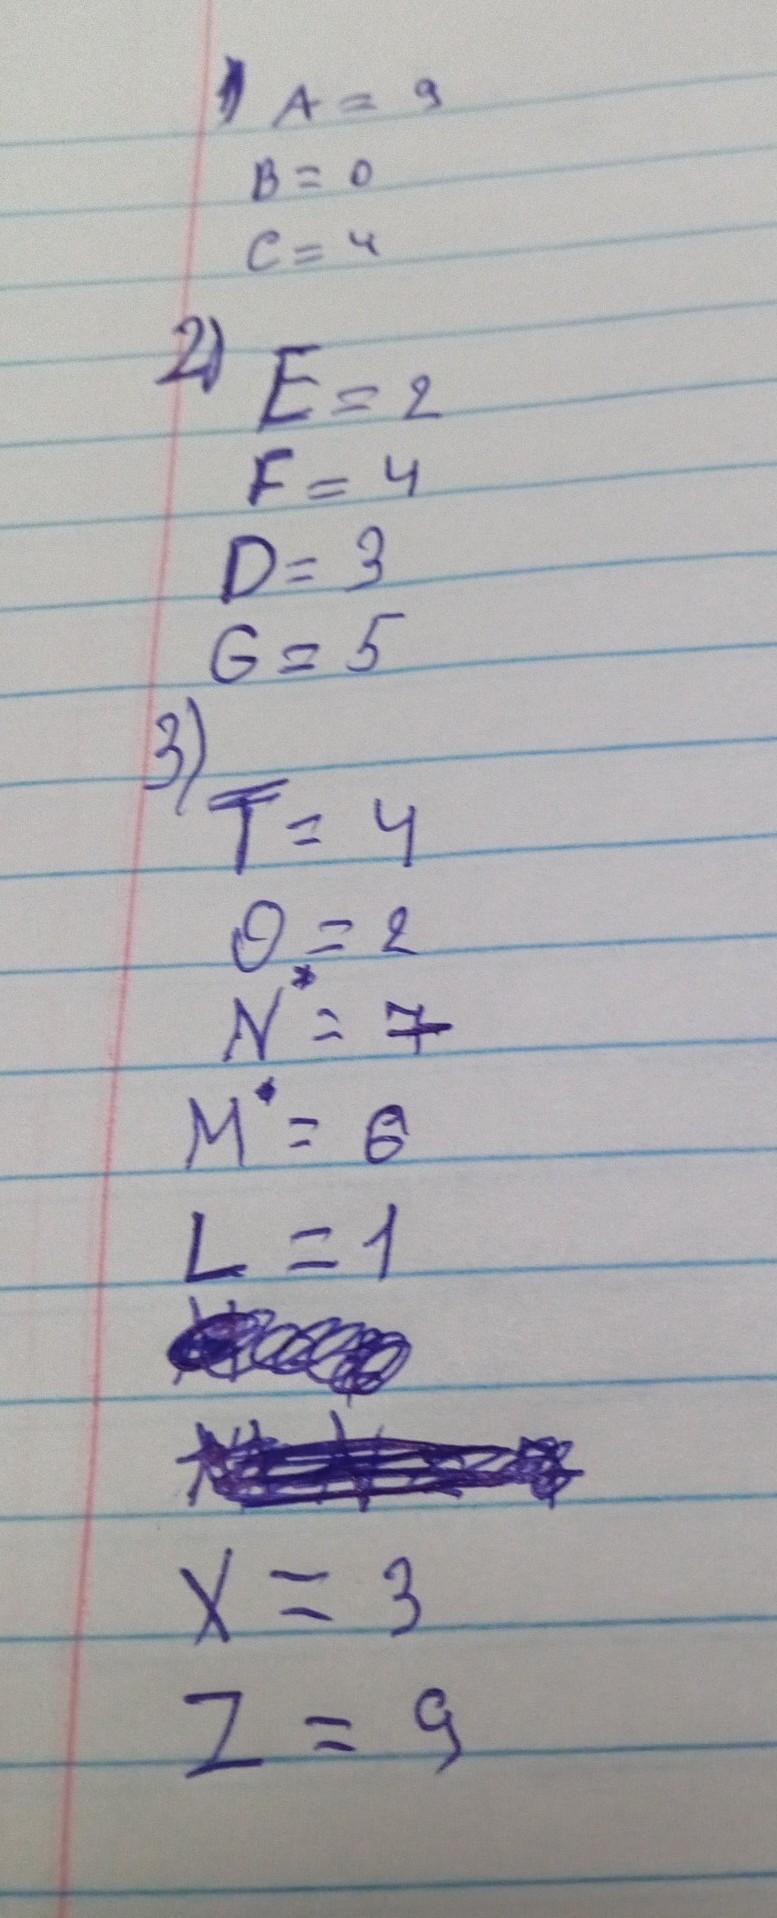 1) A = 9
B = 0
C = 4
2) E = 2
F = 4
D = 3
G = 5
3)
T = 4
O = 2
N* = 7
M* = 6
L = 1
X = 3
Z = 9